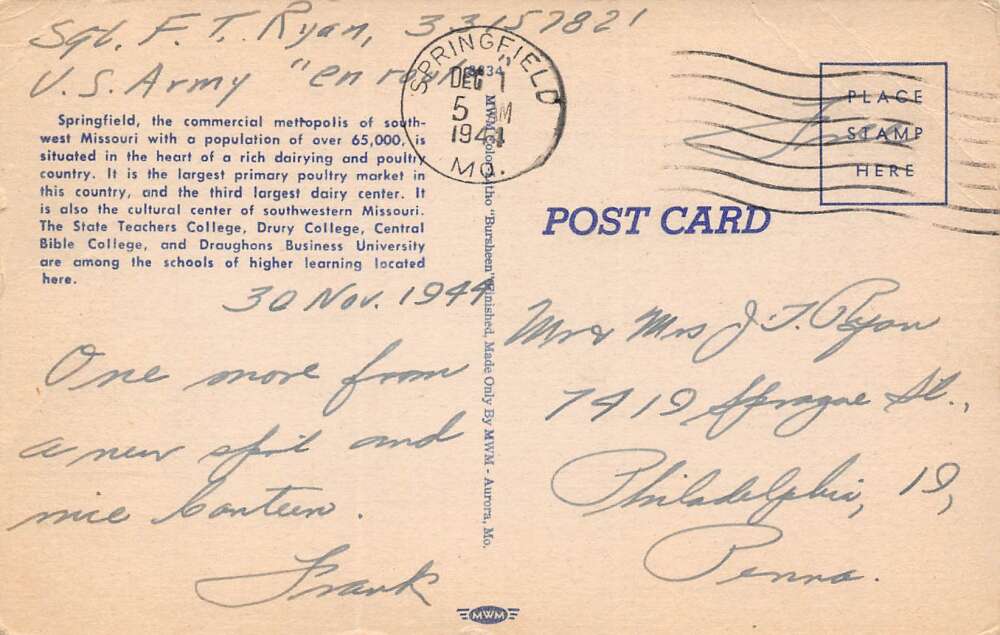 Sgt. F. T. Ryan, 33157821
U.S. Army "en route"
Springfield, the commercial metropolis of south-
west Missouri with a population of over 65,000, is
situated in the heart of a rich dairying and poultry
country. It is the largest primary poultry market in
this country, and the third largest dairy center. It
is also the cultural center of southwestern Missouri.
The State Teachers College, Drury College, Central
Bible College, and Draughons Business University
are among the schools of higher learning located
here.
30 Nov. 1944
One more from
a new spot and
nice Canteen.
Frank
SPRINGFIELD
DEC 1
5 M
1944
MO.
MWM Color-Litho "Bursheen" Finished, Made Only By MWM - Aurora, Mo.
PLACE
STAMP
HERE
Free
POST CARD
Mr & Mrs J. T. Ryan
7419 Sprague St.,
Philadelphia, 19,
Penna.
MWM